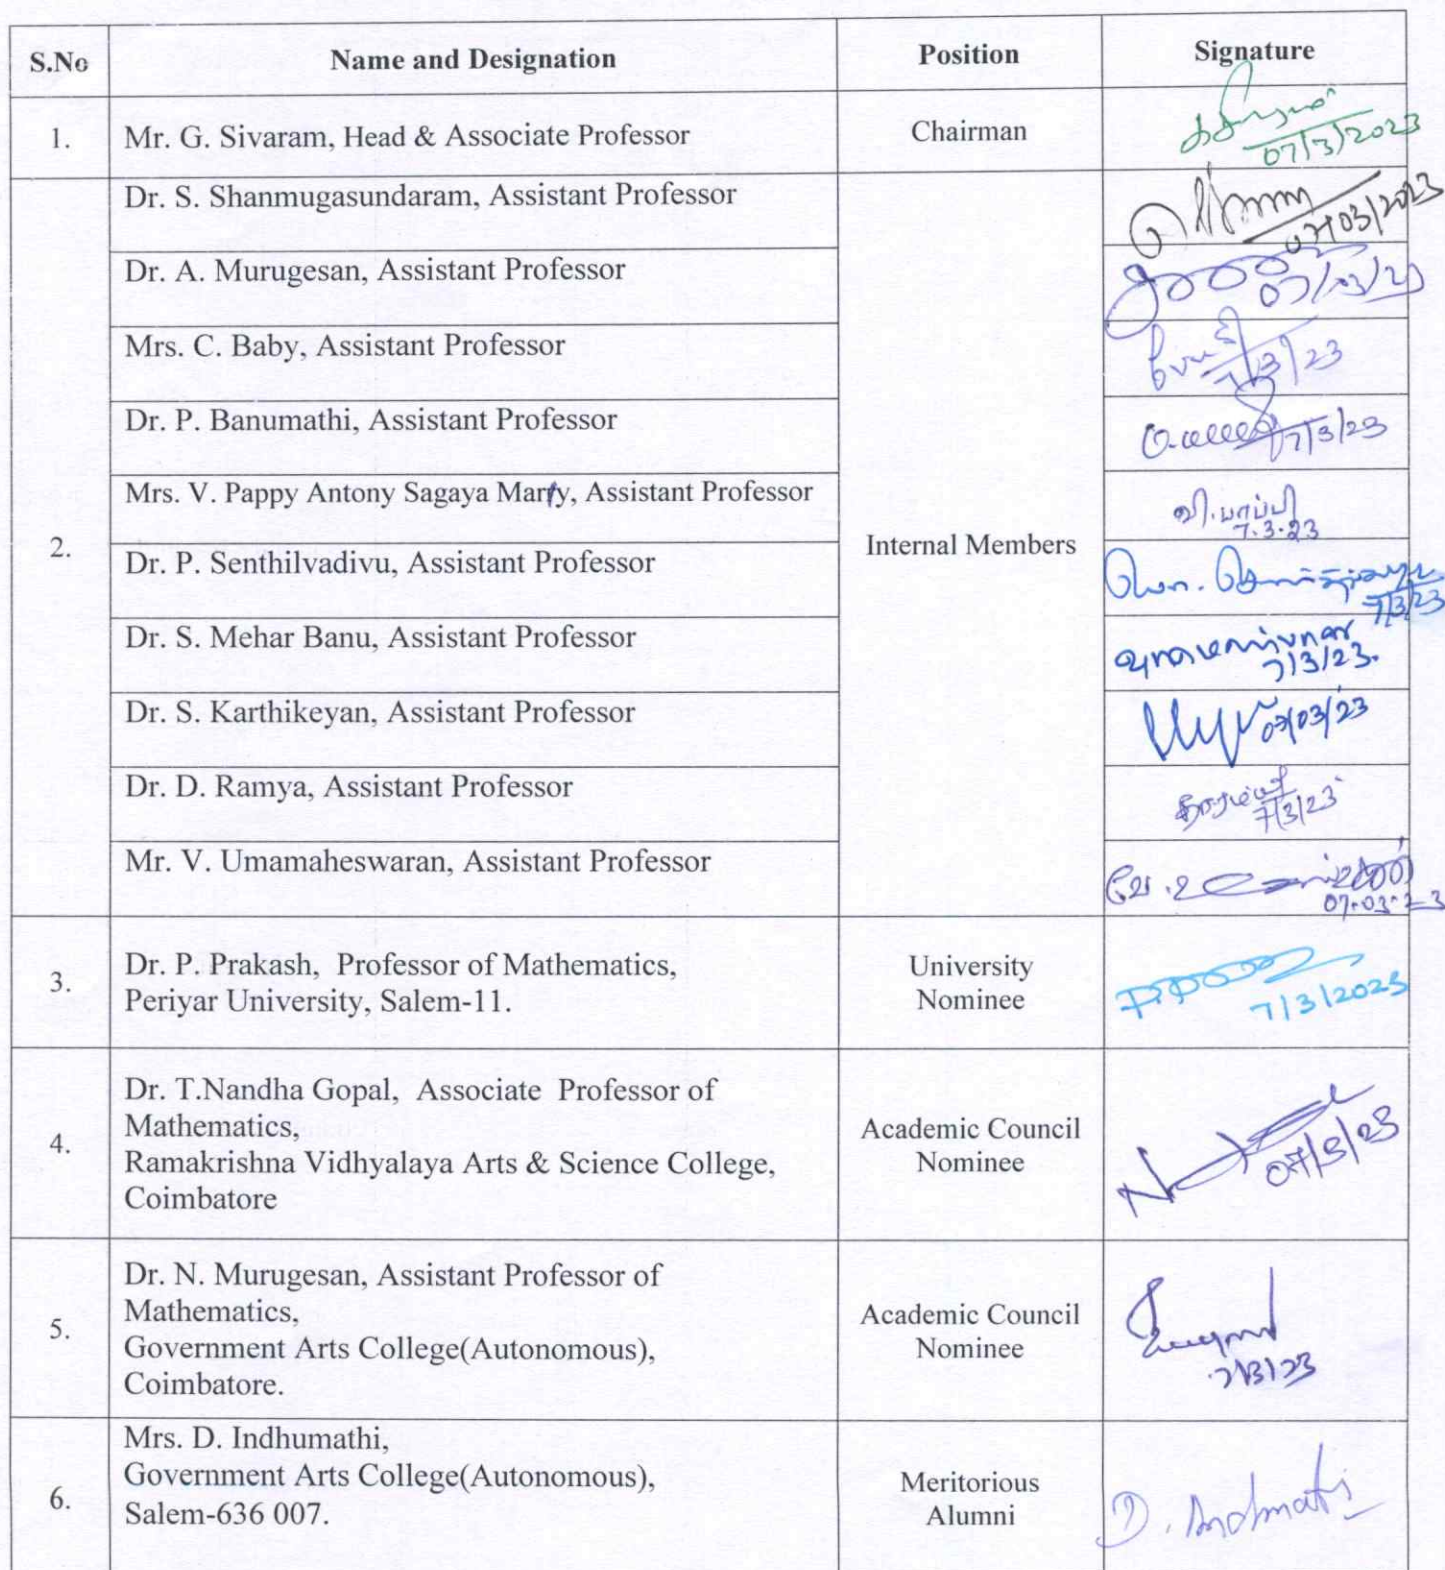 S.No Name and Designation Position Signature
1. Mr. G. Sivaram, Head & Associate Professor Chairman
07/3/2023
Dr. S. Shanmugasundaram, Assistant Professor
07/03/2023
Dr. A. Murugesan, Assistant Professor
07/03/23
Mrs. C. Baby, Assistant Professor
7/3/23
Dr. P. Banumathi, Assistant Professor
7/3/23
Mrs. V. Pappy Antony Sagaya Marry, Assistant Professor
வி.பாப்பி
7.3.23
2. Internal Members
Dr. P. Senthilvadivu, Assistant Professor
7/3/23
Dr. S. Mehar Banu, Assistant Professor
7/3/23.
Dr. S. Karthikeyan, Assistant Professor
07/03/23
Dr. D. Ramya, Assistant Professor
7/3/23
Mr. V. Umamaheswaran, Assistant Professor
07.03.23
3. Dr. P. Prakash, Professor of Mathematics,
Periyar University, Salem-11.
University
Nominee
7/3/2023
4. Dr. T.Nandha Gopal, Associate Professor of
Mathematics,
Ramakrishna Vidhyalaya Arts & Science College,
Coimbatore
Academic Council
Nominee
07/3/23
5. Dr. N. Murugesan, Assistant Professor of
Mathematics,
Government Arts College(Autonomous),
Coimbatore.
Academic Council
Nominee
7/3/23
6. Mrs. D. Indhumathi,
Government Arts College(Autonomous),
Salem-636 007.
Meritorious
Alumni